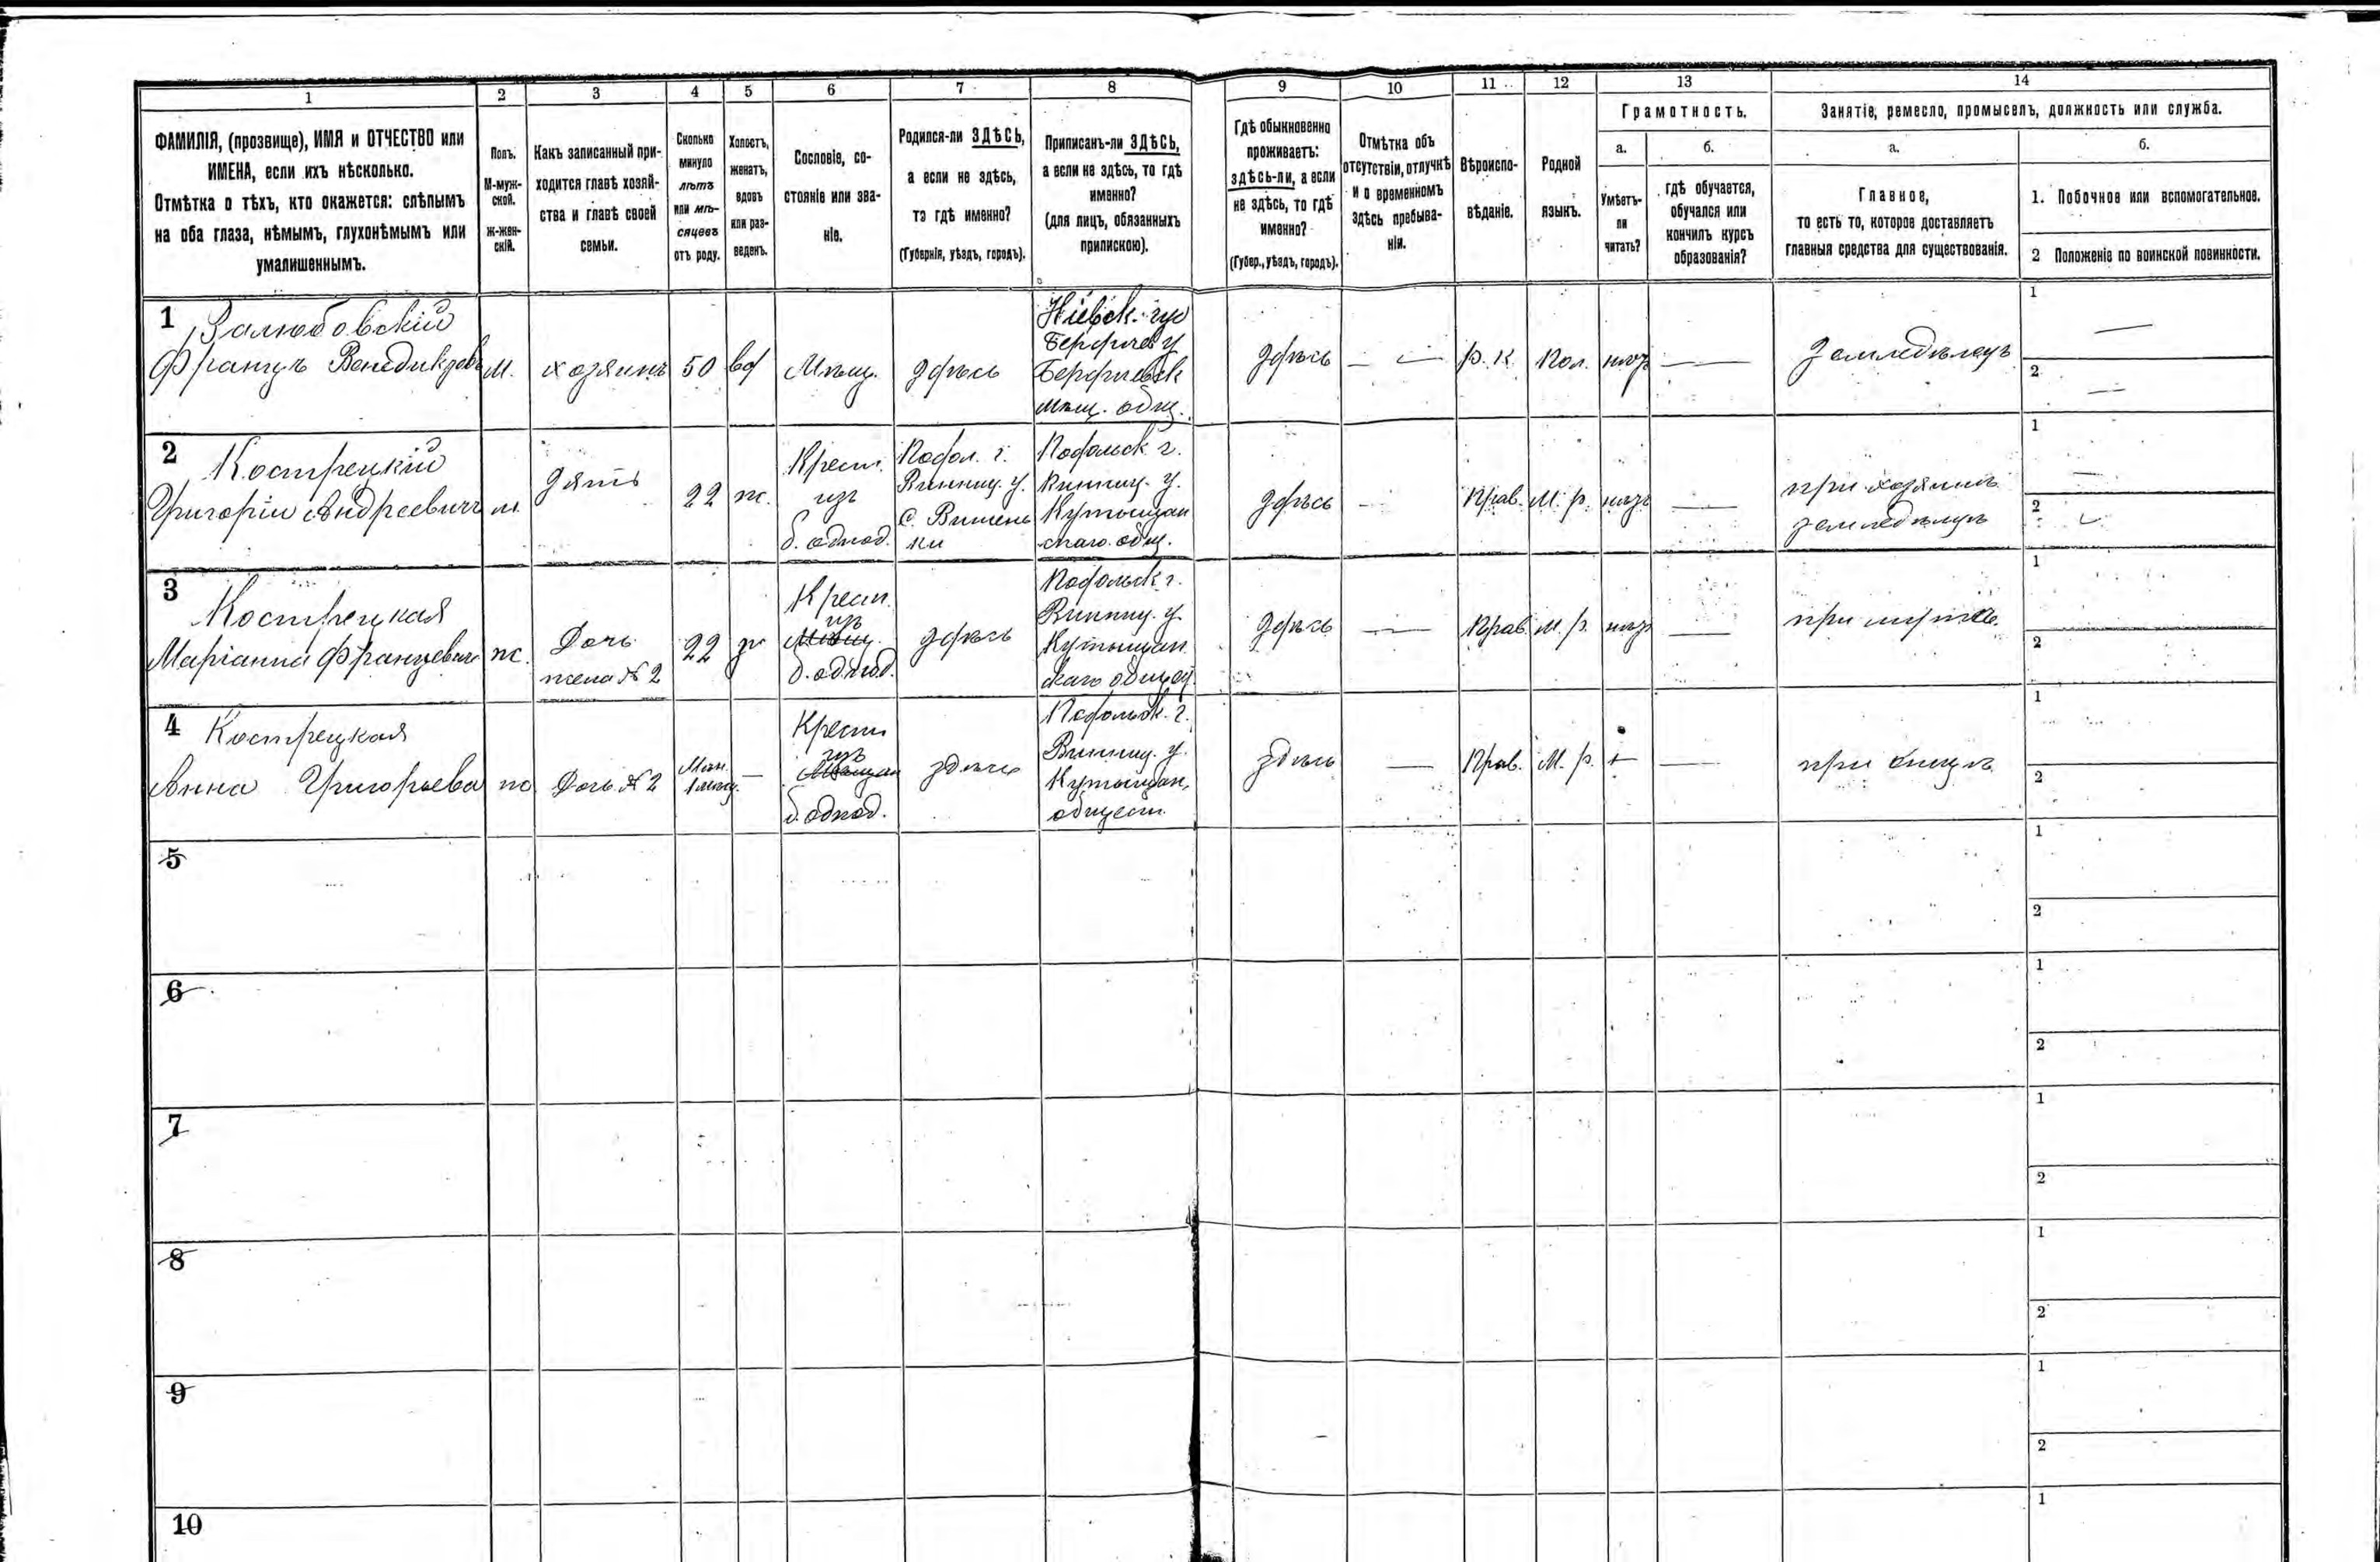 1
2
3
4
5
6
7
8
9
10
11
12
13
14
ФАМИЛІЯ, (прозвище), ИМЯ и ОТЧЕСТВО или
ИМЕНА, если ихъ нѣсколько.
Отмѣтка о тѣхъ, кто окажется: слѣпымъ
на оба глаза, нѣмымъ, глухонѣмымъ или
умалишеннымъ.
Полъ.
М-муж-
ской.
ж-жен-
скій.
Какъ записанный при-
ходится главѣ хозяй-
ства и главѣ своей
семьи.
Сколько
минуло
лѣтъ
или мѣ-
сяцевъ
отъ роду.
Холостъ,
женатъ,
вдовъ
или раз-
веденъ.
Сословіе, со-
стояніе или зва-
ніе.
Родился-ли ЗДѢСЬ,
а если не здѣсь,
то гдѣ именно?
(Губернія, уѣздъ, городъ).
Приписанъ-ли ЗДѢСЬ,
а если не здѣсь, то гдѣ
именно?
(для лицъ, обязанныхъ
припискою).
Гдѣ обыкновенно
проживаетъ:
здѣсь-ли, а если
не здѣсь, то гдѣ
именно?
(Губер., уѣздъ, городъ).
Отмѣтка объ
отсутствіи, отлучкѣ
и о временномъ
здѣсь пребыва-
ніи.
Вѣроиспо-
вѣданіе.
Родной
языкъ.
Грамотность.
а.
Умѣетъ-
ли
читать?
б.
гдѣ обучается,
обучался или
кончилъ курсъ
образованія?
Занятіе, ремесло, промыселъ, должность или служба.
а.
Главное,
то есть то, которое доставляетъ
главныя средства для существованія.
б.
1. Побочное или вспомогательное.
2 Положеніе по воинской повинности.
1
Залюбовскій
Францъ Венедиктовъ
М.
хозяинъ
50
вд
Мѣщ.
здѣсь
Кіевск. гу
Бердичев у
Бердичевск
мѣщ. общ.
здѣсь
р. к.
Пол.
нѣтъ
Земледѣлецъ
1
2
2
Кострецкій
Григорій Андреевичъ
м
зять
22
ж.
Крест.
изъ
б. однод.
Подол. г.
Винниц. у.
с. Вишень
ки
Подольск г.
Винниц. у.
Кутыщан
скаго общ.
здѣсь
Прав.
М. р.
нѣтъ
при хозяинѣ
земледѣлецъ
1
2
3
Кострецкая
Маріанна Францевна
ж.
Дочь
жена № 2
22
з
Крест.
изъ
Мѣщ.
б. однод.
здѣсь
Подольск г.
Винниц. у.
Кутыщан
скаго общест
здѣсь
Прав.
М. р.
нѣтъ
при мужѣ
1
2
4
Кострецкая
Анна Григорьева
ж
Дочь № 2
Крест
изъ
б. однод.
здѣсь
Подольск. г.
Винниц. у.
Кутыщан,
общест.
здѣсь
Прав.
М. р.
при отцѣ
1
2
5
1
2
6
1
2
7
1
2
8
1
2
9
1
2
10
1